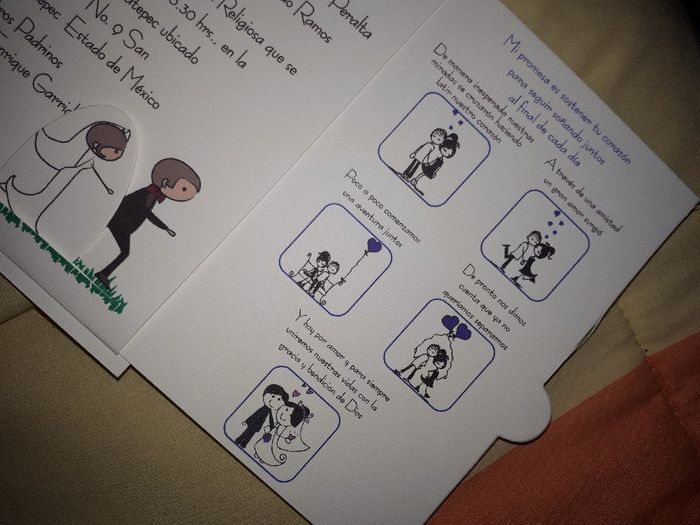 Peralta
Ramos
Religiosa que se
.30 hrs., en la
tepec ubicado
No. 9 San
Estado de México
os Padrinos
nrique Garrid
Mi promesa es sostener tu corazón
para seguir soñando juntos
al final de cada día
De manera inesperada nuestras
miradas se cruzarón haciendo
latir nuestro corazón
A través de una amistad
un gran amor surgió
Poco a poco comenzamos
una aventura juntos
De pronto nos dimos
cuenta que ya no
queríamos separarnos
Y hoy por amor y para siempre
uniremos nuestras vidas con la
gracia y bendición de Dios